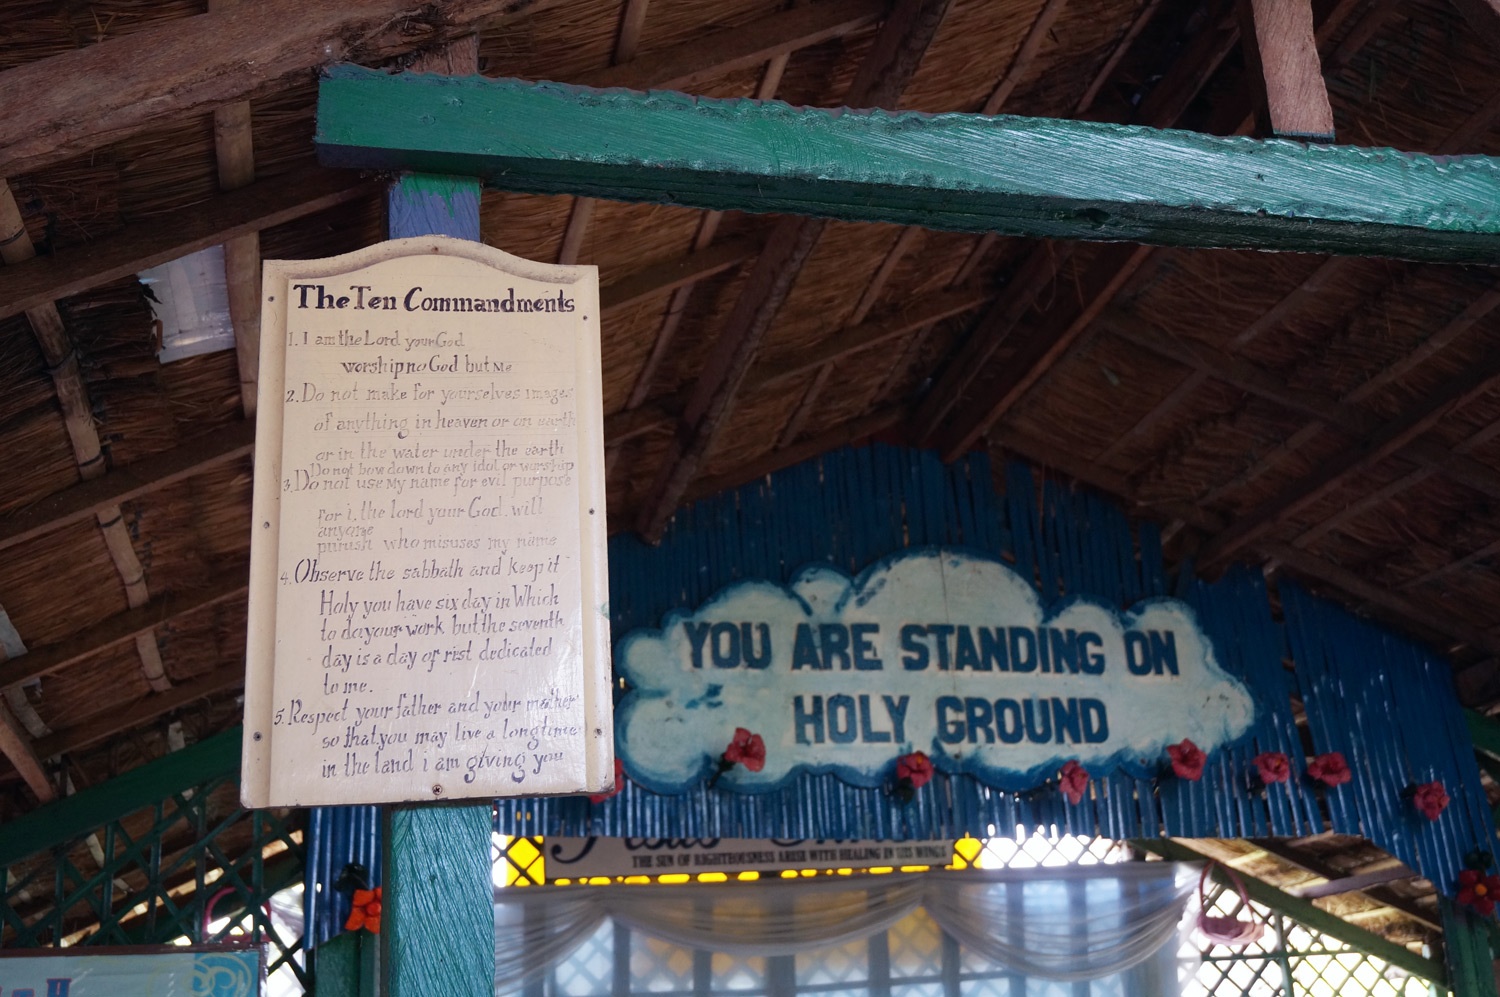 The Ten Commandments
1. I am the Lord your God
worship no God but Me
2. Do not make for yourselves images
of anything in heaven or on earth
or in the water under the earth
Do not bow down to any idol or worship
3. Do not use My name for evil purpose
for i, the lord your God, will
anyone
punish who misuses my name
4. Observe the sabbath and keep it
Holy you have six day in Which
to do your work but the seventh
day is a day of rist dedicated
to me.
5. Respect your father and your mother
so that you may live a long time
in the land i am giving you
YOU ARE STANDING ON
HOLY GROUND
THE SUN OF RIGHTHOUSNESS ARISE WITH HEALING IN HIS WINGS